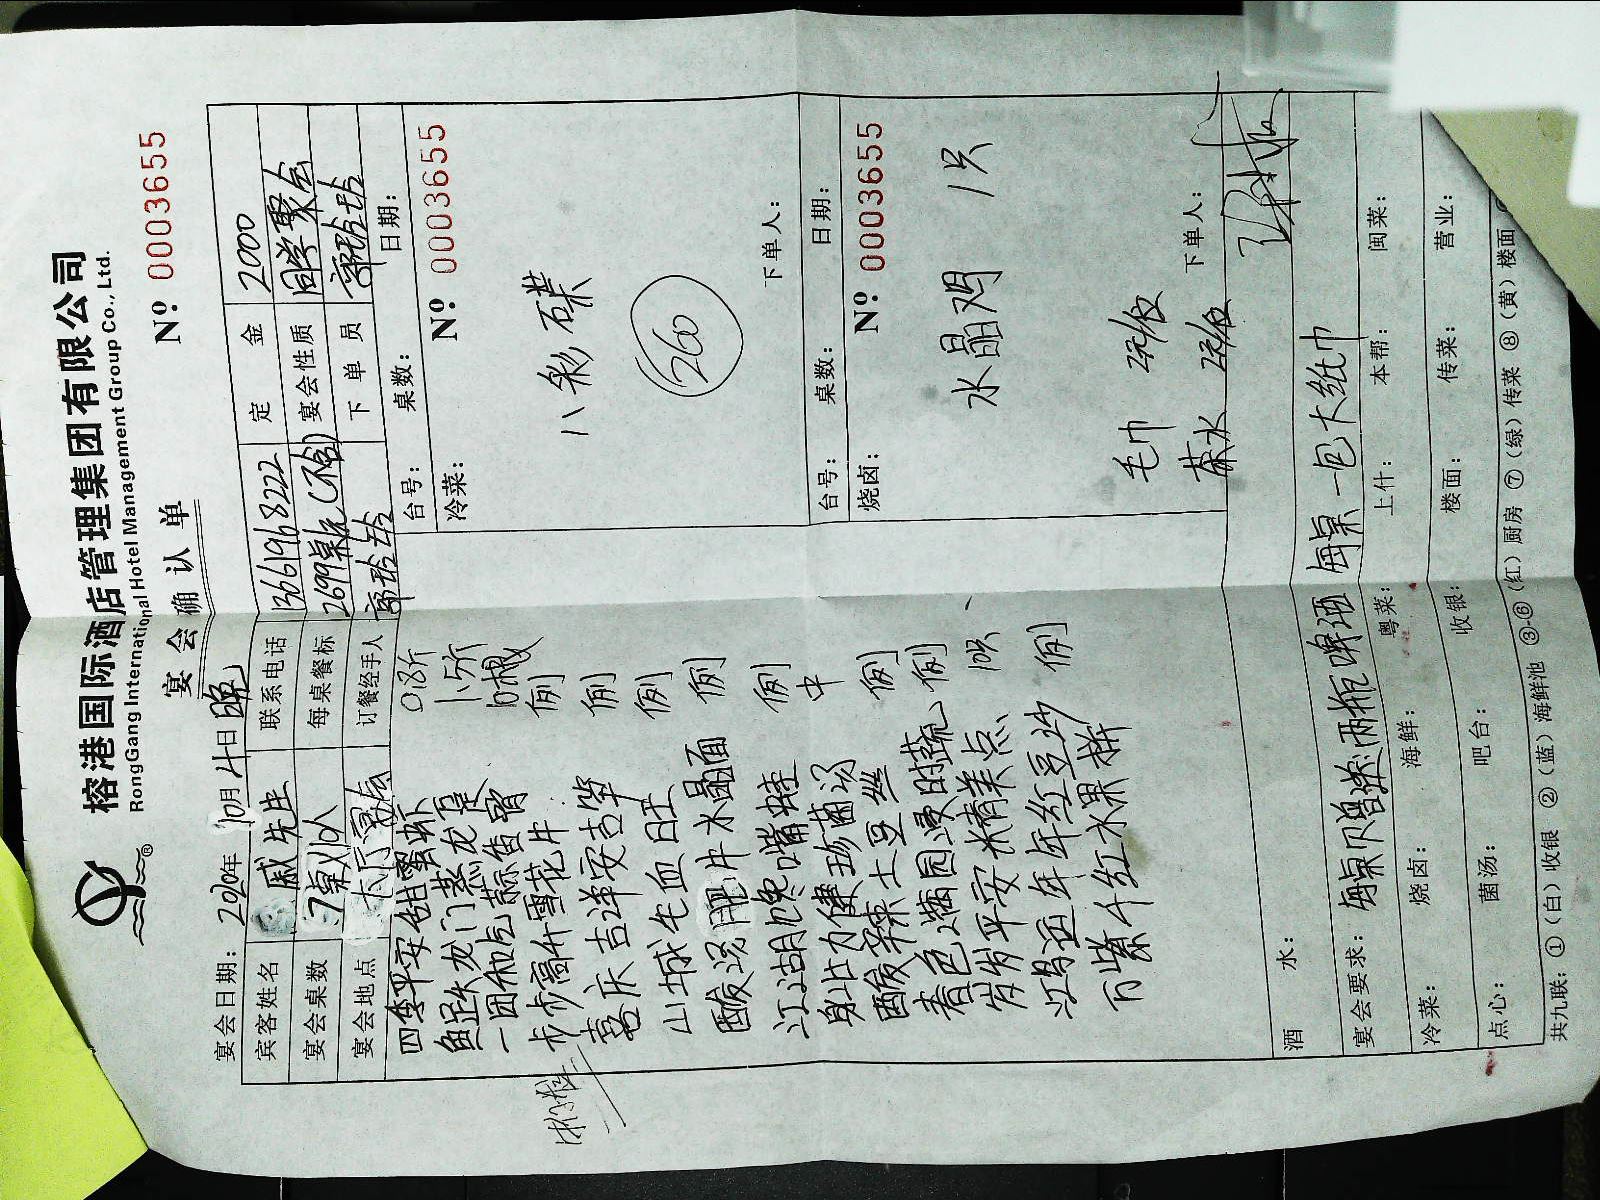 榕港国际酒店管理集团有限公司
RongGang International Hotel Management Group Co., Ltd.
宴会确认单
Nº 0003655
宴会日期： 年10月4日晚
宾客姓名 戚先生 联系电话 13661968222 定金 2000
宴会桌数 7桌×10人 每桌餐标 2699/桌(不含) 宴会性质 同学聚会
宴会地点 大厅 订餐经手人 下单员
台号： 桌数： 日期：
冷菜： Nº 0003655
八彩碟
260
下单人：
台号： 桌数： 日期：
烧卤： Nº 0003655
水晶鸡 1只
毛巾 2元/位
茶水 2元/位
下单人：
四季平安甜蜜虾 0.8斤
鱼跃龙门蒸龙趸 1.5斤
一团和气蒜香骨 10根
步步高升雪花片 例
喜庆吉祥安吉笋 例
山城毛血旺 例
酸汤肥牛水晶面 例
江湖馋嘴蛙 例
身壮力健珍菌汤 中
酸辣土豆丝 例
春色满园漫时蔬 例
岁岁平安米精美点 10只
鸿运年年红豆沙 例
万紫千红水果拼
酒水：
宴会要求： 每桌赠送两瓶啤酒 每桌一包大纸巾
冷菜： 烧卤： 海鲜： 粤菜： 上什： 本帮： 闽菜：
点心： 菌汤： 吧台： 收银： 楼面： 传菜： 营业：
共九联：①（白）收银 ②（蓝）海鲜池 ③-⑥（红）厨房 ⑦（绿）传菜 ⑧（黄）楼面